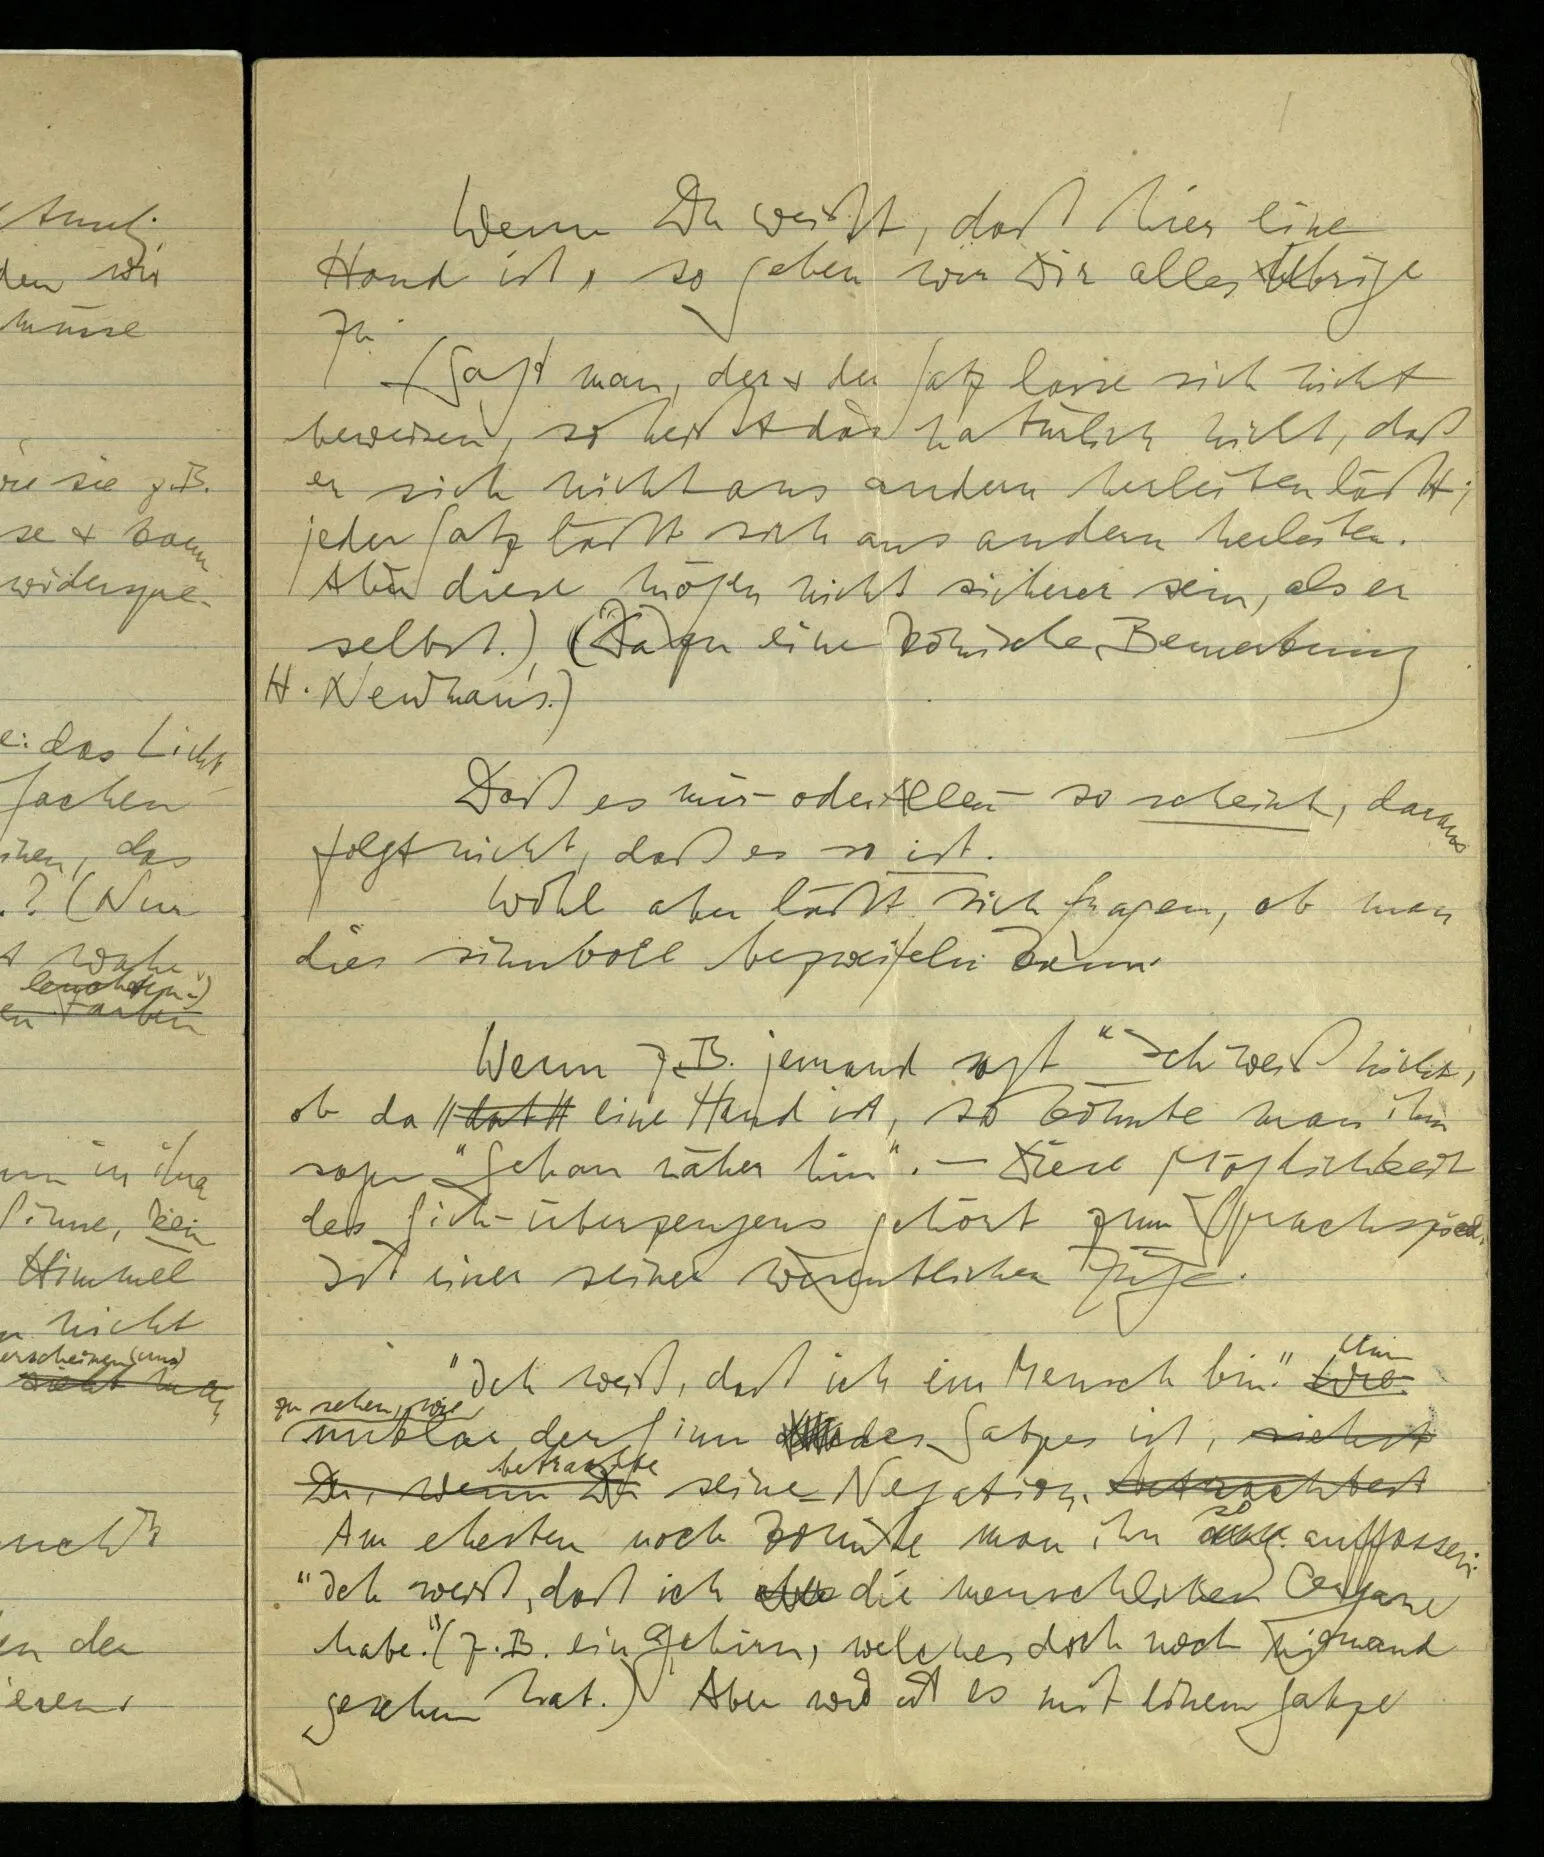 Kunst.
den wir
müsse
wie sie z.B.
se & kann
widerspre-
e: das Licht
Sachen
inen, das
.? (Nur
wahr
leuchten.)
en Farben
nn in ihra
Sinne, kein
Himmel
n nicht
erscheinen (und)
sieht man
en der
ieren.
Wenn Du weißt, daß hier eine
Hand ist, so geben wir Dir alles Übrige
zu.
(Sagt man, der & der Satz lasse sich nicht
beweisen, so heißt das natürlich nicht, daß
er sich nicht aus andern herleiten läßt;
jeder Satz läßt sich aus andern herleiten.
Aber diese mögen nicht sicherer sein, als er
selbst.) (Dazu eine komische Bemerkung
H. Newman's.)
Daß es mir – oder Allen – so scheint, daraus
folgt nicht, daß es so ist.
Wohl aber läßt sich fragen, ob man
dies sinnvoll bezweifeln kann.
Wenn z.B. jemand sagt "Ich weiß nicht,
ob da eine Hand ist, so könnte man ihm
sagen "Schau näher hin". – Diese Möglichkeit
des Sich-überzeugens gehört zum Sprachspiel.
Ist einer seiner wesentlichen Züge.
"Ich weiß, daß ich ein Mensch bin." Wie Um
zu sehen, wie
unklar der Sinn des Satzes ist, siehst
Du, wenn Du betrachte seine Negation. betrachtest
Am ehesten noch könnte man ihn so auffassen:
"Ich weiß, daß ich die menschlichen Organe
habe." (z.B. ein Gehirn, welches doch noch niemand
gesehen hat.) Aber wie ist es mit einem Satze